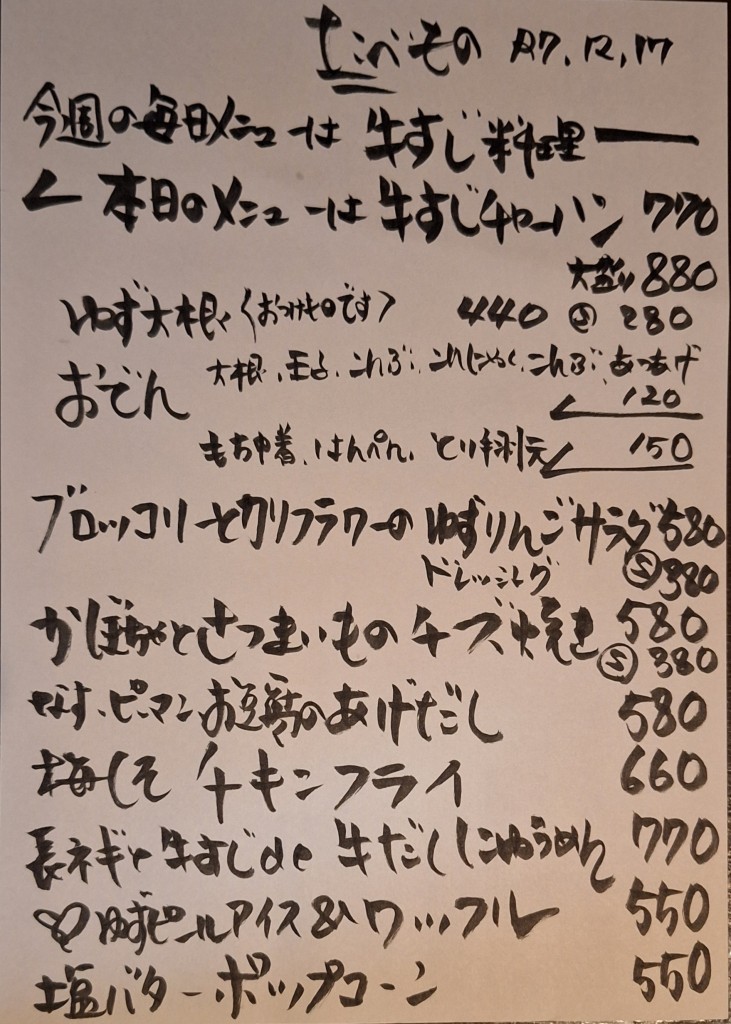 たべもの R7.12.17
今週の毎日メニューは 牛すじ料理
本日のメニューは 牛すじチャーハン 770
大盛り 880
ゆず大根〈おつけものです〉 440 Ⓢ 280
おでん 大根、玉子、こんぶ、こんにゃく、こんぶ、あつあげ
120
もち巾着、はんぺん、とり手羽元 150
ブロッコリーとカリフラワーの ゆずりんごサラダ 580
ドレッシング Ⓢ 380
かぼちゃとさつまいものチーズ焼き 580
Ⓢ 380
なす、ピーマン、お豆腐のあげだし 580
梅しそ チキンフライ 660
長ネギと牛すじde 牛だしにゅうめん 770
♡ゆずピールアイス&ワッフル 550
塩バターポップコーン 550